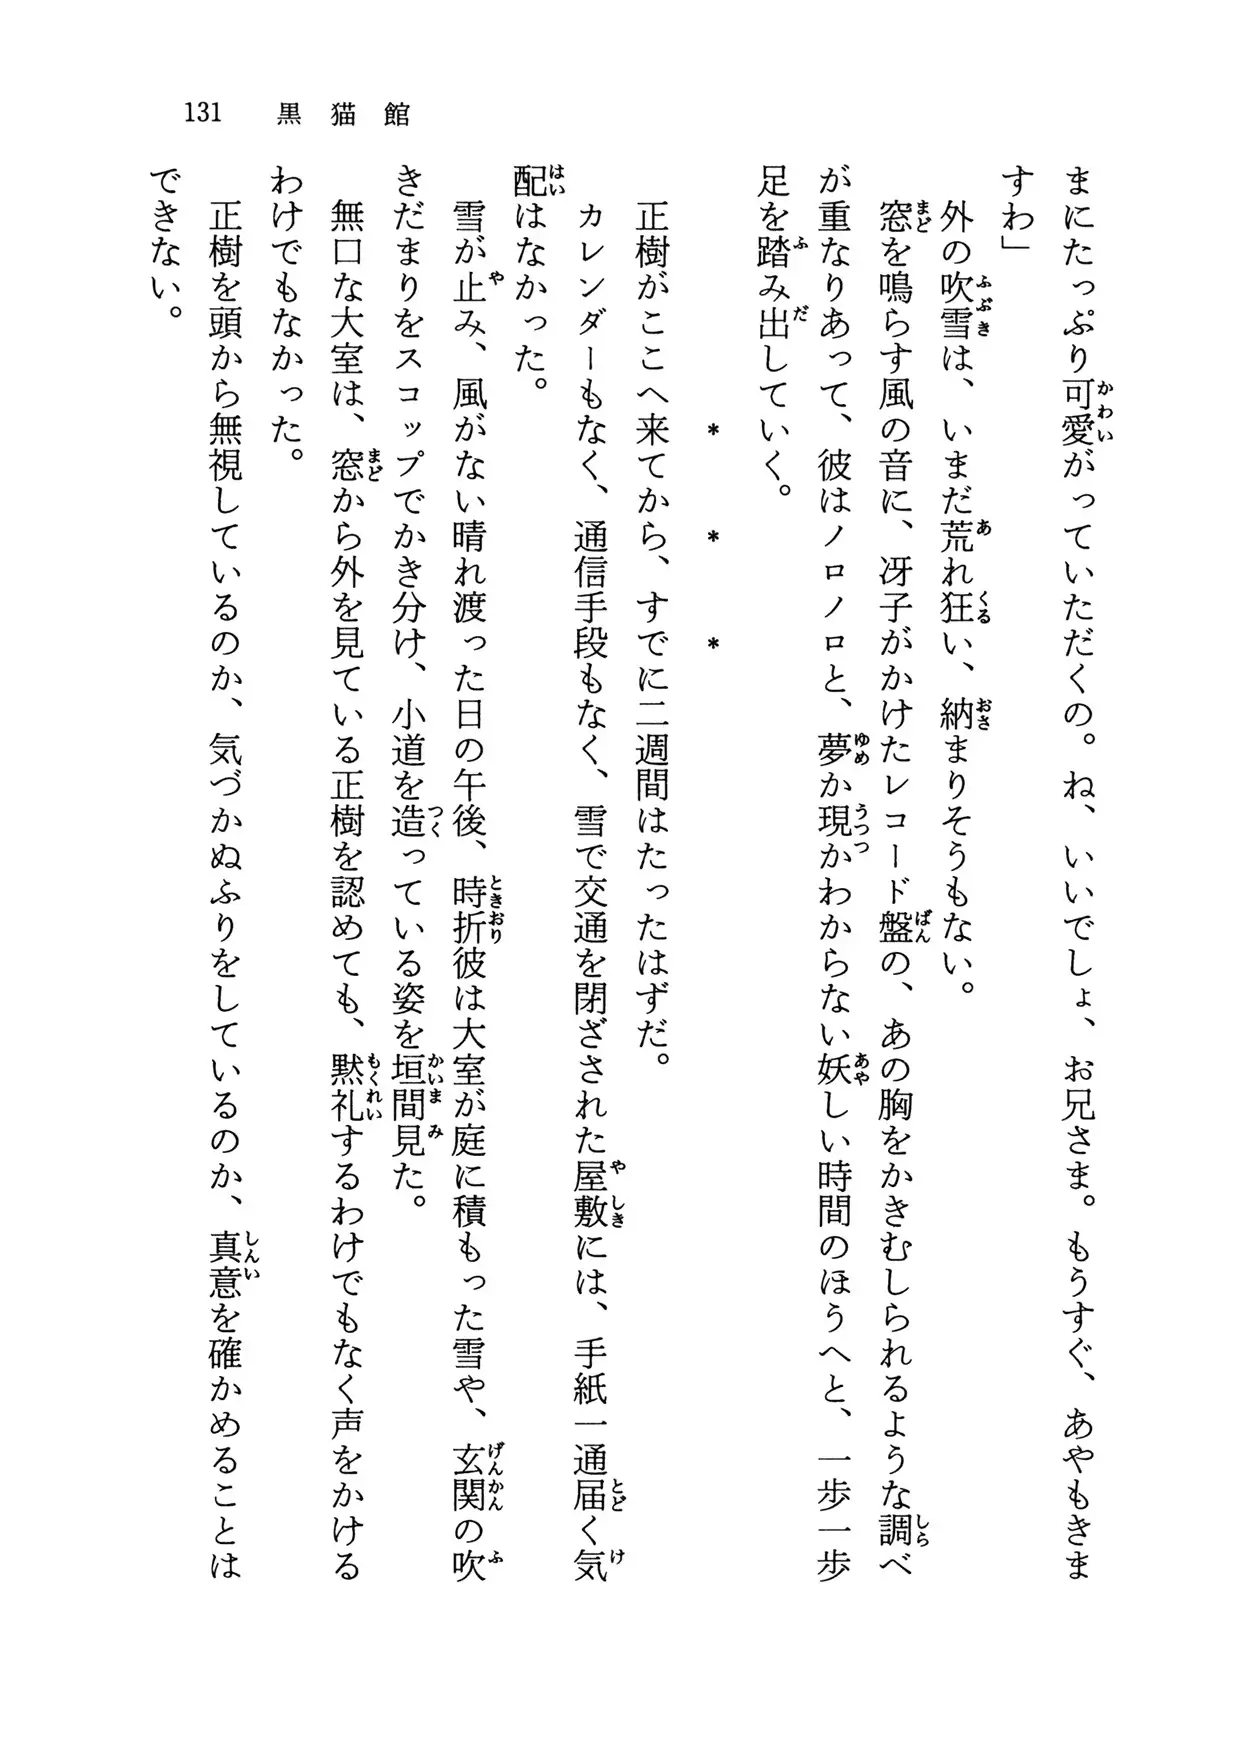 131 黒猫館
まにたっぷり可愛がっていただくの。ね、いいでしょ、お兄さま。もうすぐ、あやもきま
すわ」
外の吹雪は、いまだ荒れ狂い、納まりそうもない。
窓を鳴らす風の音に、冴子がかけたレコード盤の、あの胸をかきむしられるような調べ
が重なりあって、彼はノロノロと、夢か現かわからない妖しい時間のほうへと、一歩一歩
足を踏み出していく。
* * *
正樹がここへ来てから、すでに二週間はたったはずだ。
カレンダーもなく、通信手段もなく、雪で交通を閉ざされた屋敷には、手紙一通届く気
配はなかった。
雪が止み、風がない晴れ渡った日の午後、時折彼は大室が庭に積もった雪や、玄関の吹
きだまりをスコップでかき分け、小道を造っている姿を垣間見た。
無口な大室は、窓から外を見ている正樹を認めても、黙礼するわけでもなく声をかける
わけでもなかった。
正樹を頭から無視しているのか、気づかぬふりをしているのか、真意を確かめることは
できない。